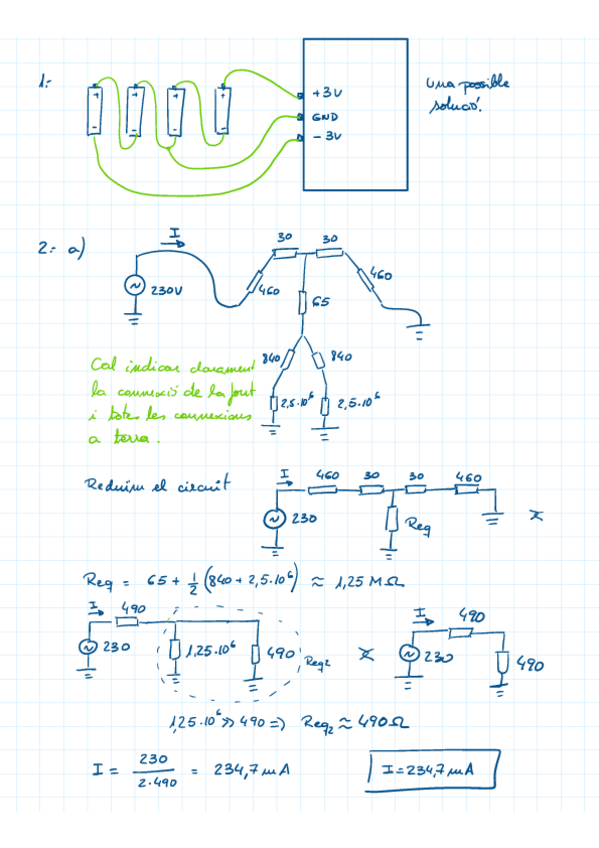 1:
+ + + +
- - - -
+3V
GND
-3V
Una possible
solució.
2: a)
I
230V
460 30 30 460
65
840 840
2,5·10⁶ 2,5·10⁶
Cal indicar clarament
la connexió de la font
i totes les connexions
a terra.
Reduim el circuit
I 460 30 30 460
230
Req
Req = 65 + 1/2 (840 + 2,5·10⁶) ≈ 1,25 MΩ
I 490
230
1,25·10⁶
490
Req₂
I 490
230
490
1,25·10⁶ >> 490 => Req₂ ≈ 490Ω
I = 230 / 2·490 = 234,7 mA
I = 234,7 mA